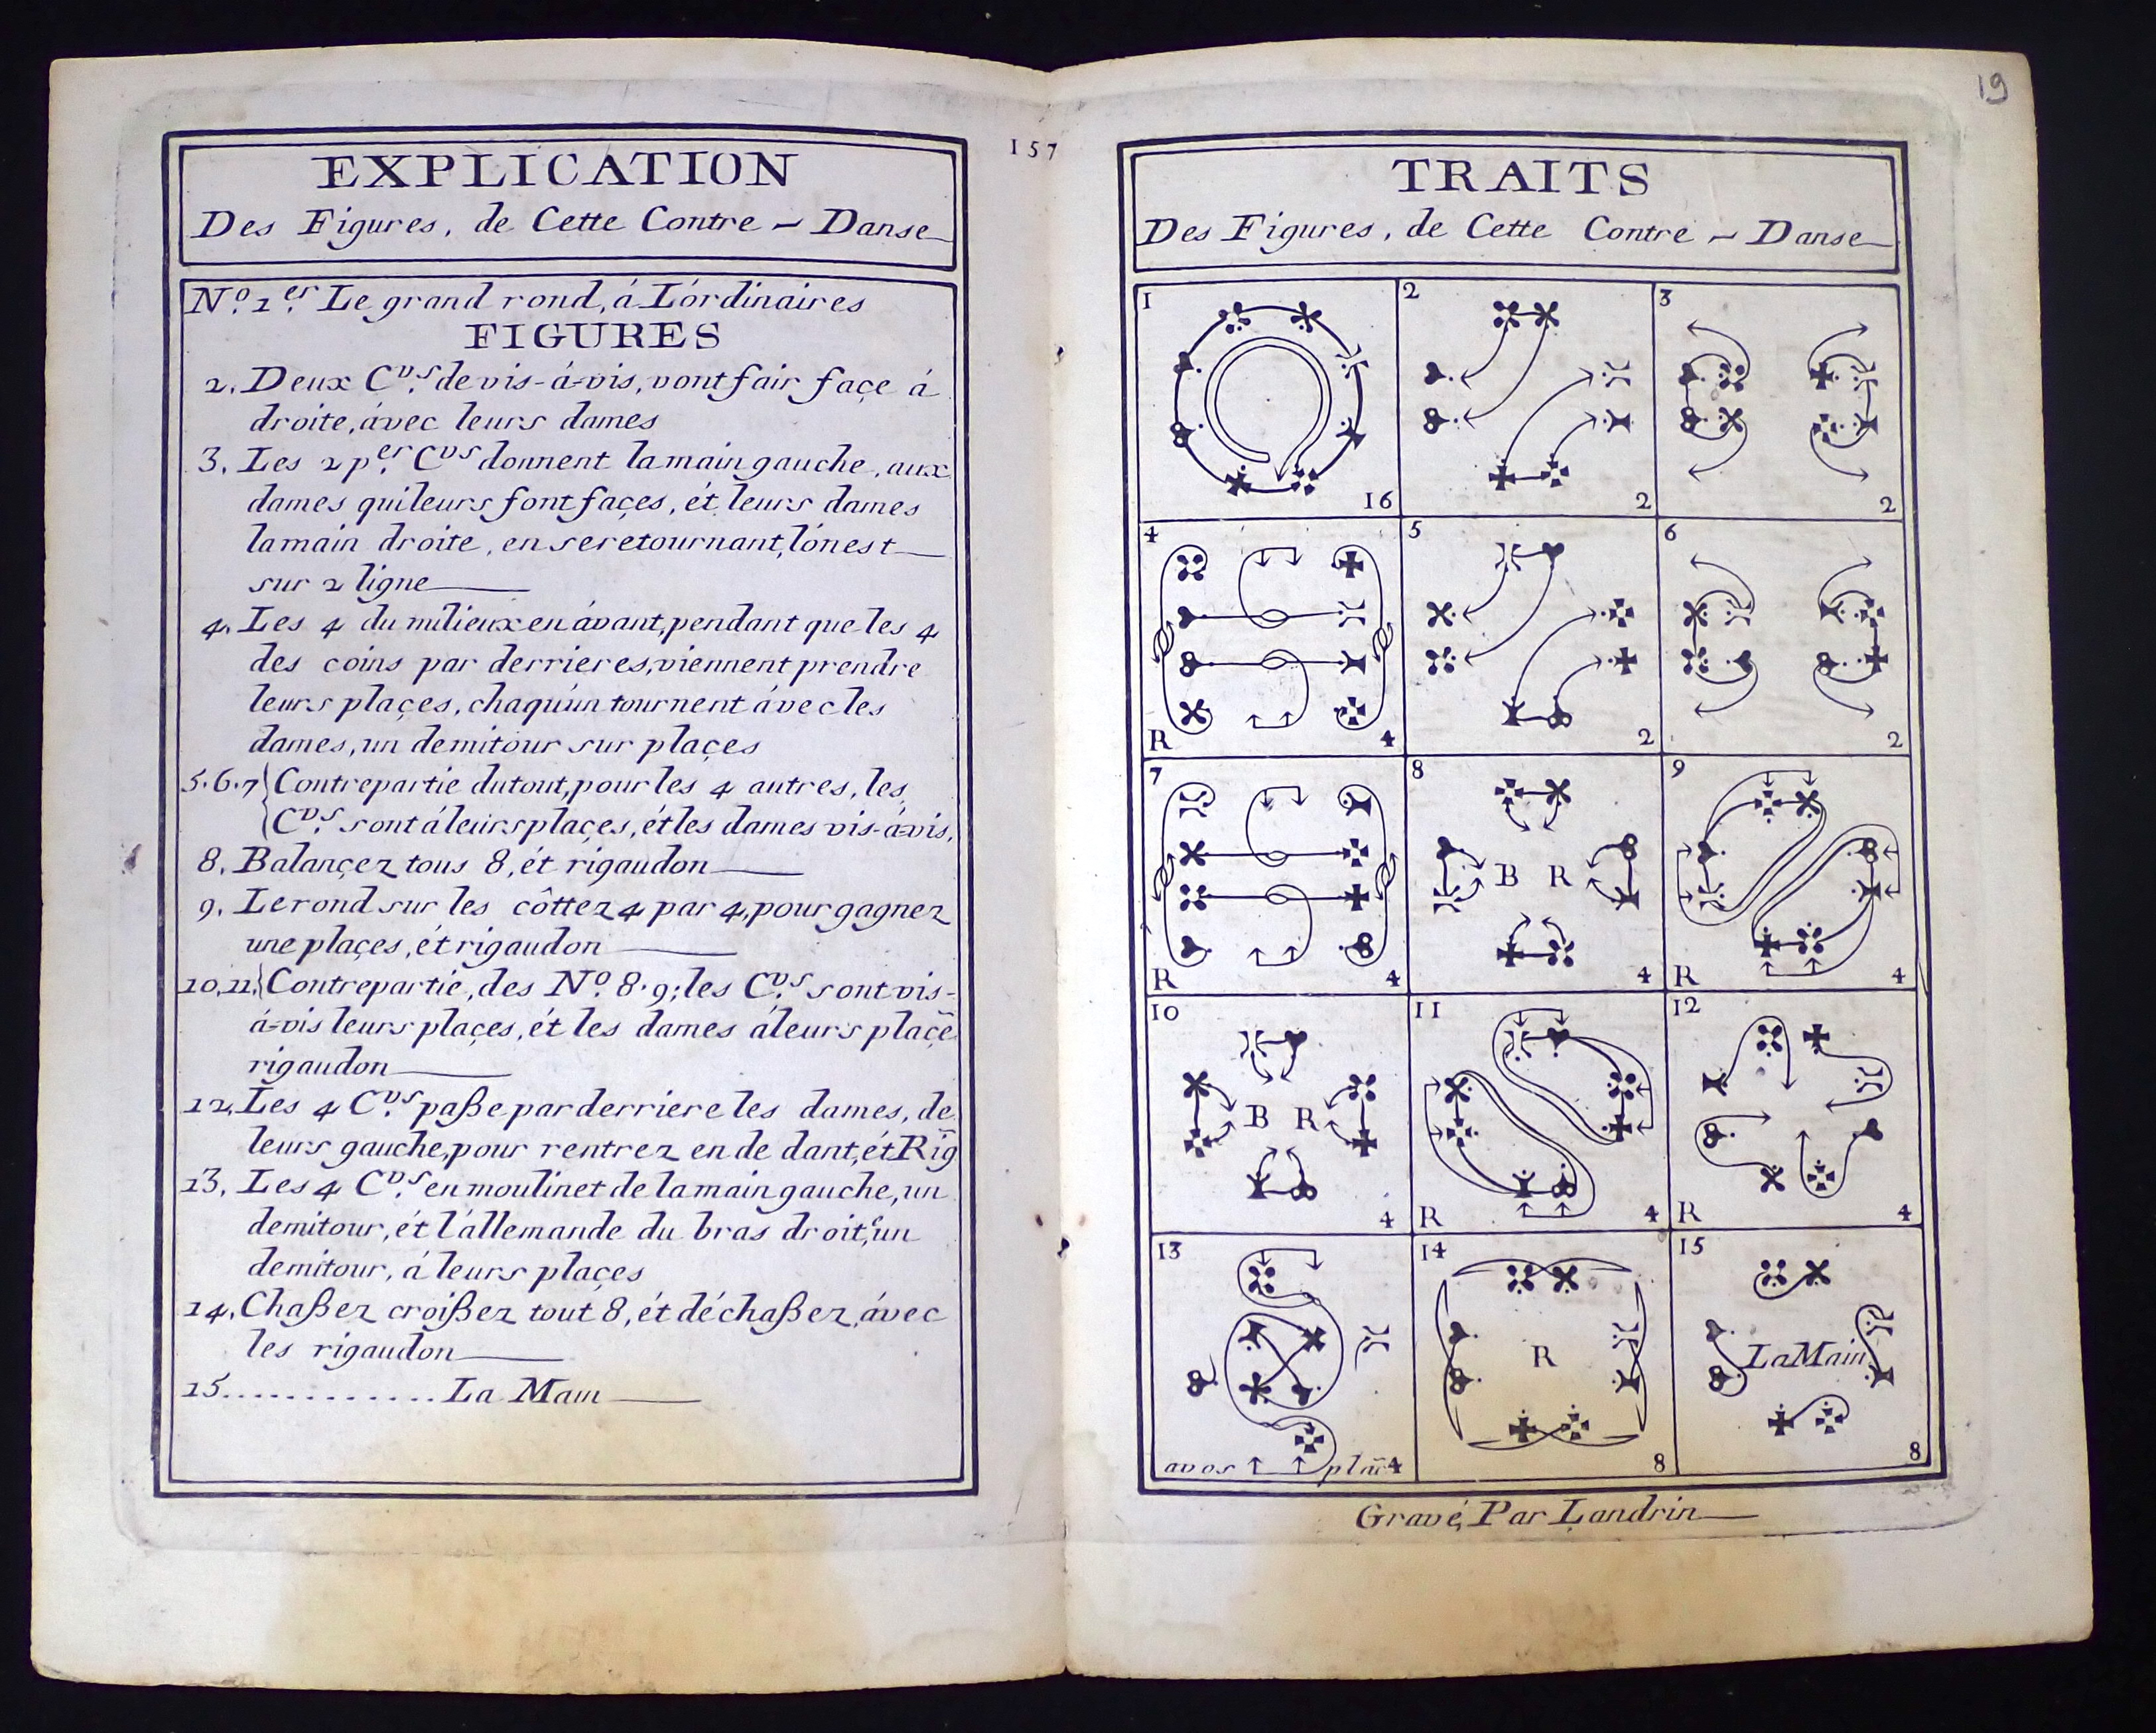 EXPLICATION
Des Figures, de Cette Contre - Danse
N.º 1.er Le grand rond, á L'órdinaires
FIGURES
2. Deux C.vrs de vis-á-vis, vont fair façe á
droite, ávec leurs dames
3. Les 2 p.er C.vrs donnent la main gauche, aux
dames qui leurs font façes, ét leurs dames
la main droite, en se retournant, l'ón est
sur 2 ligne
4. Les 4 du milieux en ávant, pendant que les 4
des coins par derrieres, viennent prendre
leurs plaçes, chaqu'un tournent ávec les
dames, un demitour sur plaçes
5.6.7 Contrepartie du tout, pour les 4 autres, les
C.vrs sont á leurs plaçes, ét les dames vis-á-vis,
8. Balançez tous 8, ét rigaudon
9. Le rond sur les côttez 4 par 4, pour gagnez
une plaçes, ét rigaudon
10,11, Contrepartie, des N.º 8.9; les C.vrs sont vis-
á-vis leurs plaçes, ét les dames á leurs plaçe
rigaudon
12, Les 4 C.vrs paße par derriere les dames, de
leurs gauche, pour rentrez en de dant, ét Rig
13, Les 4 C.vrs en moulinet de la main gauche, un
demitour, ét l'allemande du bras droit, un
demitour, á leurs plaçes
14, Chaßez croißez tout 8, ét déchaßez, ávec
les rigaudon
15............. La Main
157
19
TRAITS
Des Figures, de Cette Contre - Danse
1
16
2
2
3
2
4
R
4
5
2
6
2
7
R
4
8
B R
4
9
R
4
10
B R
4
11
R
4
12
R
4
13
avos
4
14
R
8
15
La Main
8
Gravé, Par Landrin